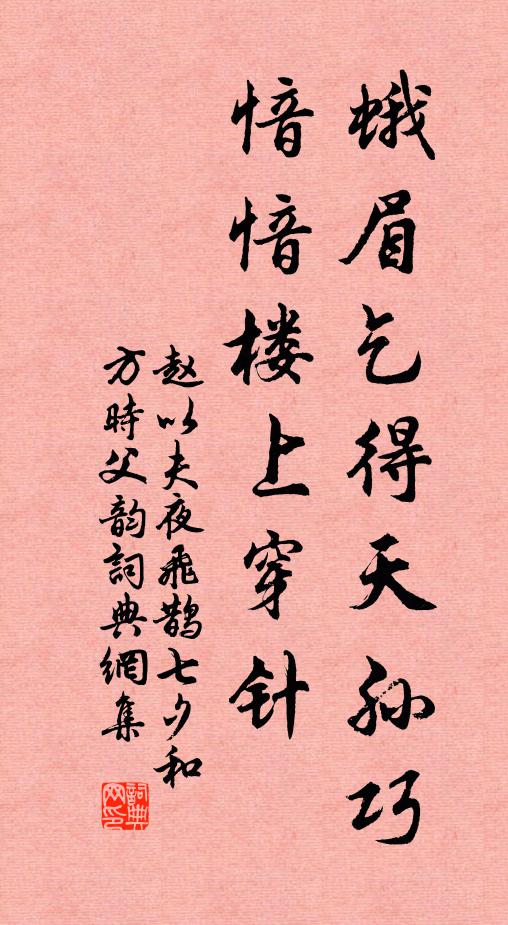 蛾眉乞得天孙巧
愔愔楼上穿针
赵以夫夜飛鹊七夕和
方時父韵詞典網集
詞典网印